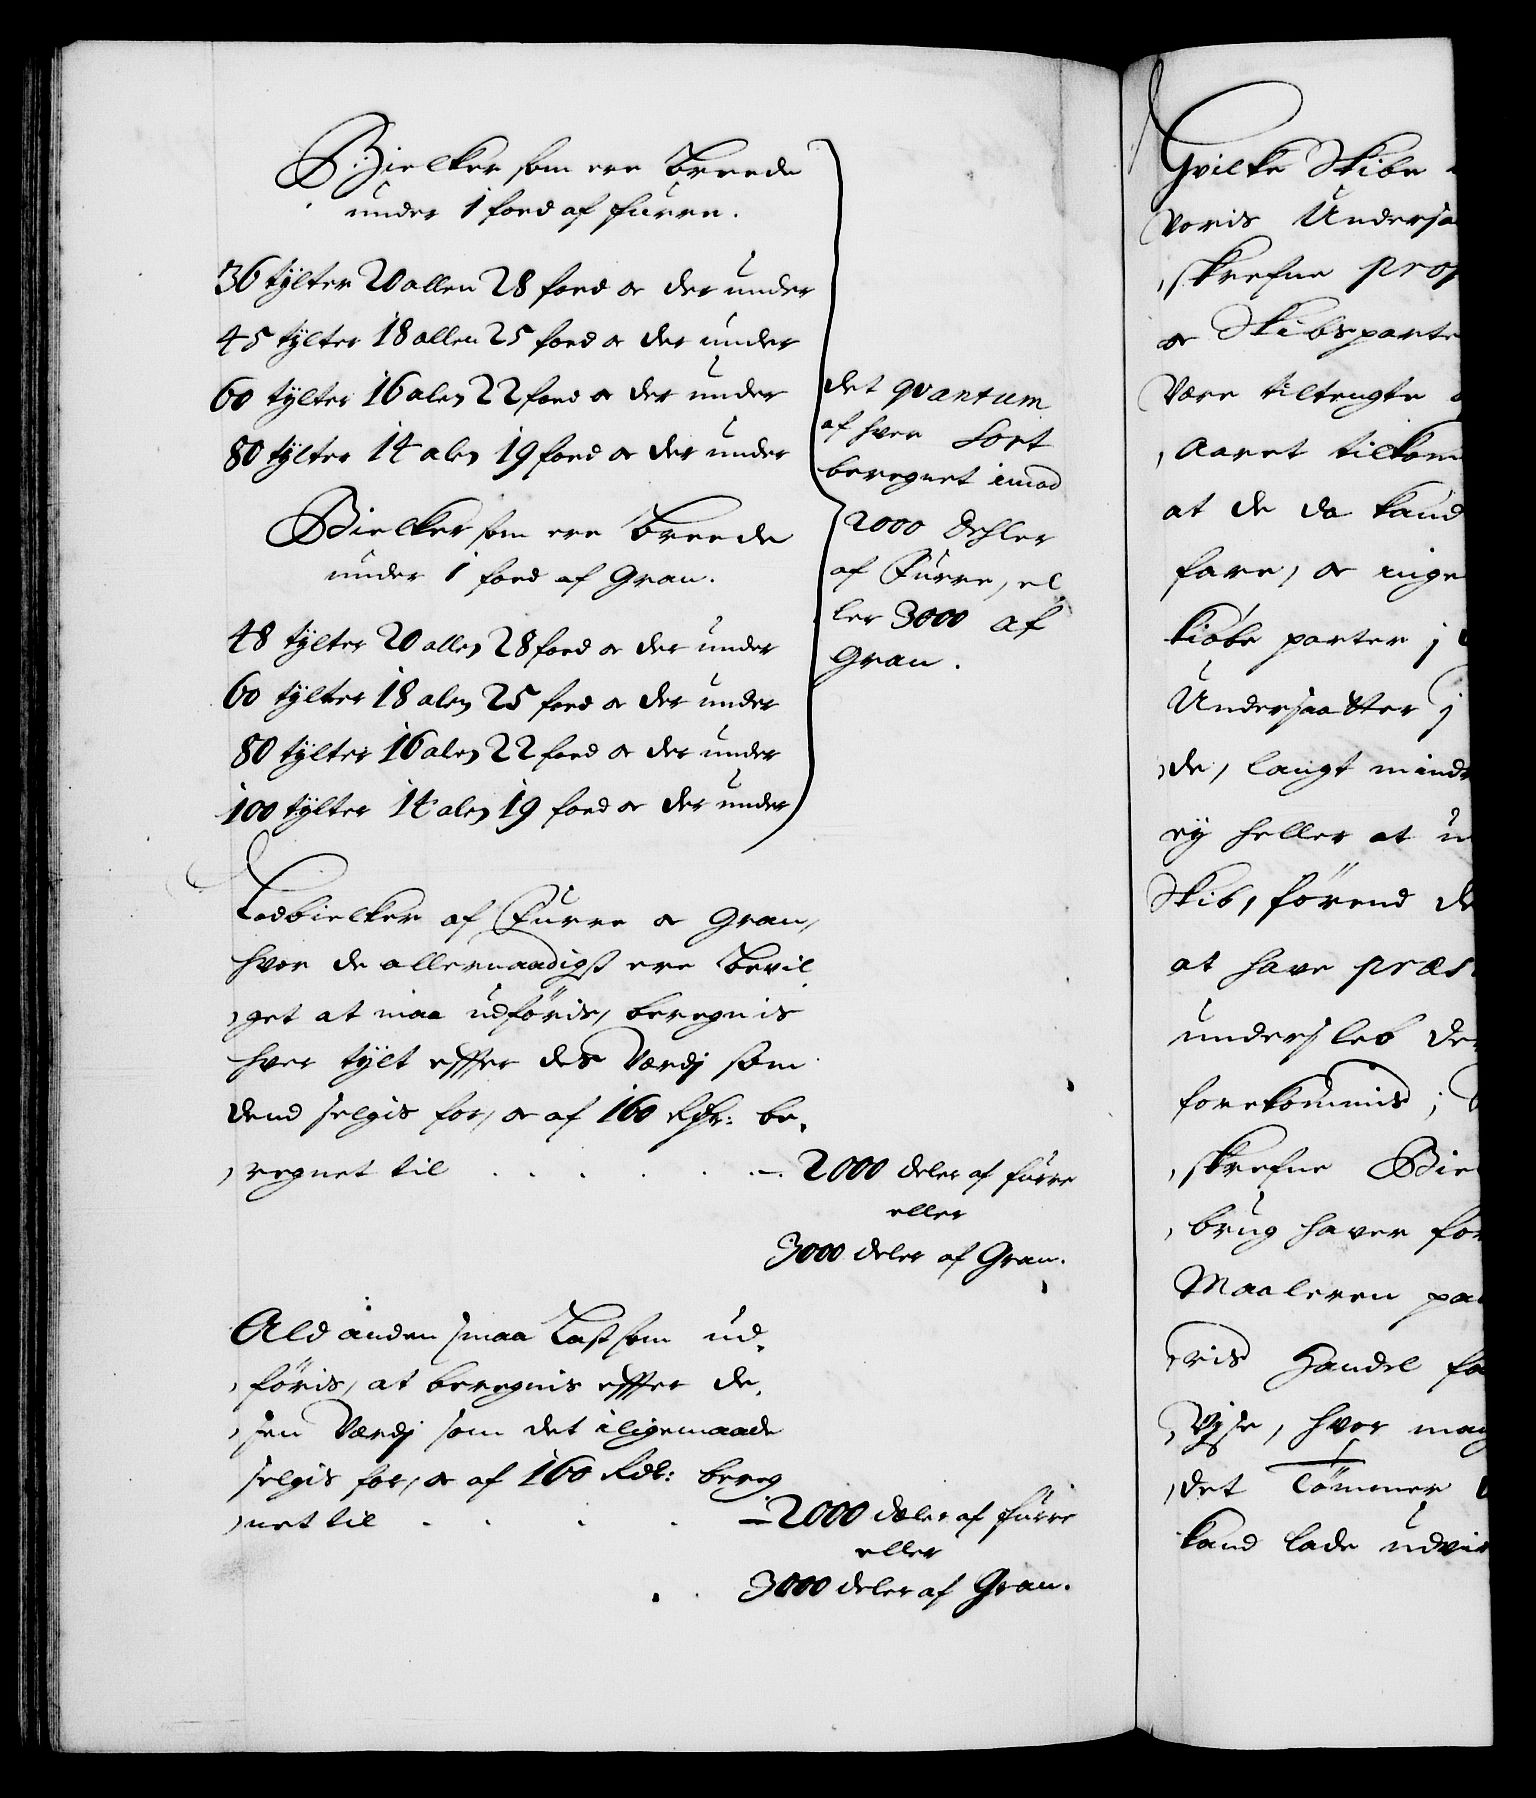 Bielker som ere Breede
under 1 foed af furre.
36 tÿlter 20 allen 28 foed oc der under
45 tÿlter 18 allen 25 foed oc der under
60 tÿlter 16 alen 22 foed oc der under
80 tÿlter 14 alen 19 foed oc der under
Bielker som ere Breede
under 1 foed af Gran.
48 tÿlter 20 allen 28 foed oc der under
60 tÿlter 18 alen 25 foed oc der under
80 tÿlter 16 alen 22 foed oc der under
100 tÿlter 14 alen 19 foed oc der under
det qvantum
af hver Sort
beregnet imod
2000 Dehler
af Furre, el
ler 3000 af
Gran.
Lodbielker af Furre oc Gran,
hvor de allernaadigst ere Bevil
get at maa udföris, beregnis
hver tÿlt effter des Værdj som
dend selgis for, oc af 160 Rdr: be,
regnet til . . . . . . 2000 deler af furre
eller
3000 deler af Gran.
Ald anden smaa Last som ud,
föris, at beregnis effter de,
sen Værdj som det iligemaade
selgis for, oc af 160 Rdr: bereg
net til . . . . 2000 deler af furre
eller
3000 deler af Gran.
Hvilke Skibe
voris Undersa
skrefne prop
oc Skibsparte
Være tiltengte
Aaret tilkom
at de da kand
fare, oc inge
kiøbe parter j
Undersaatter j
de, langt mind
eÿ heller at u
Skib, förend de
at have præs
undersleb de
forekommis;
skrefne Bie
brug haver for
Maaleren paa
ris Handel fo
Vÿse, hvor mag
det Tömmer
kand lade udvi